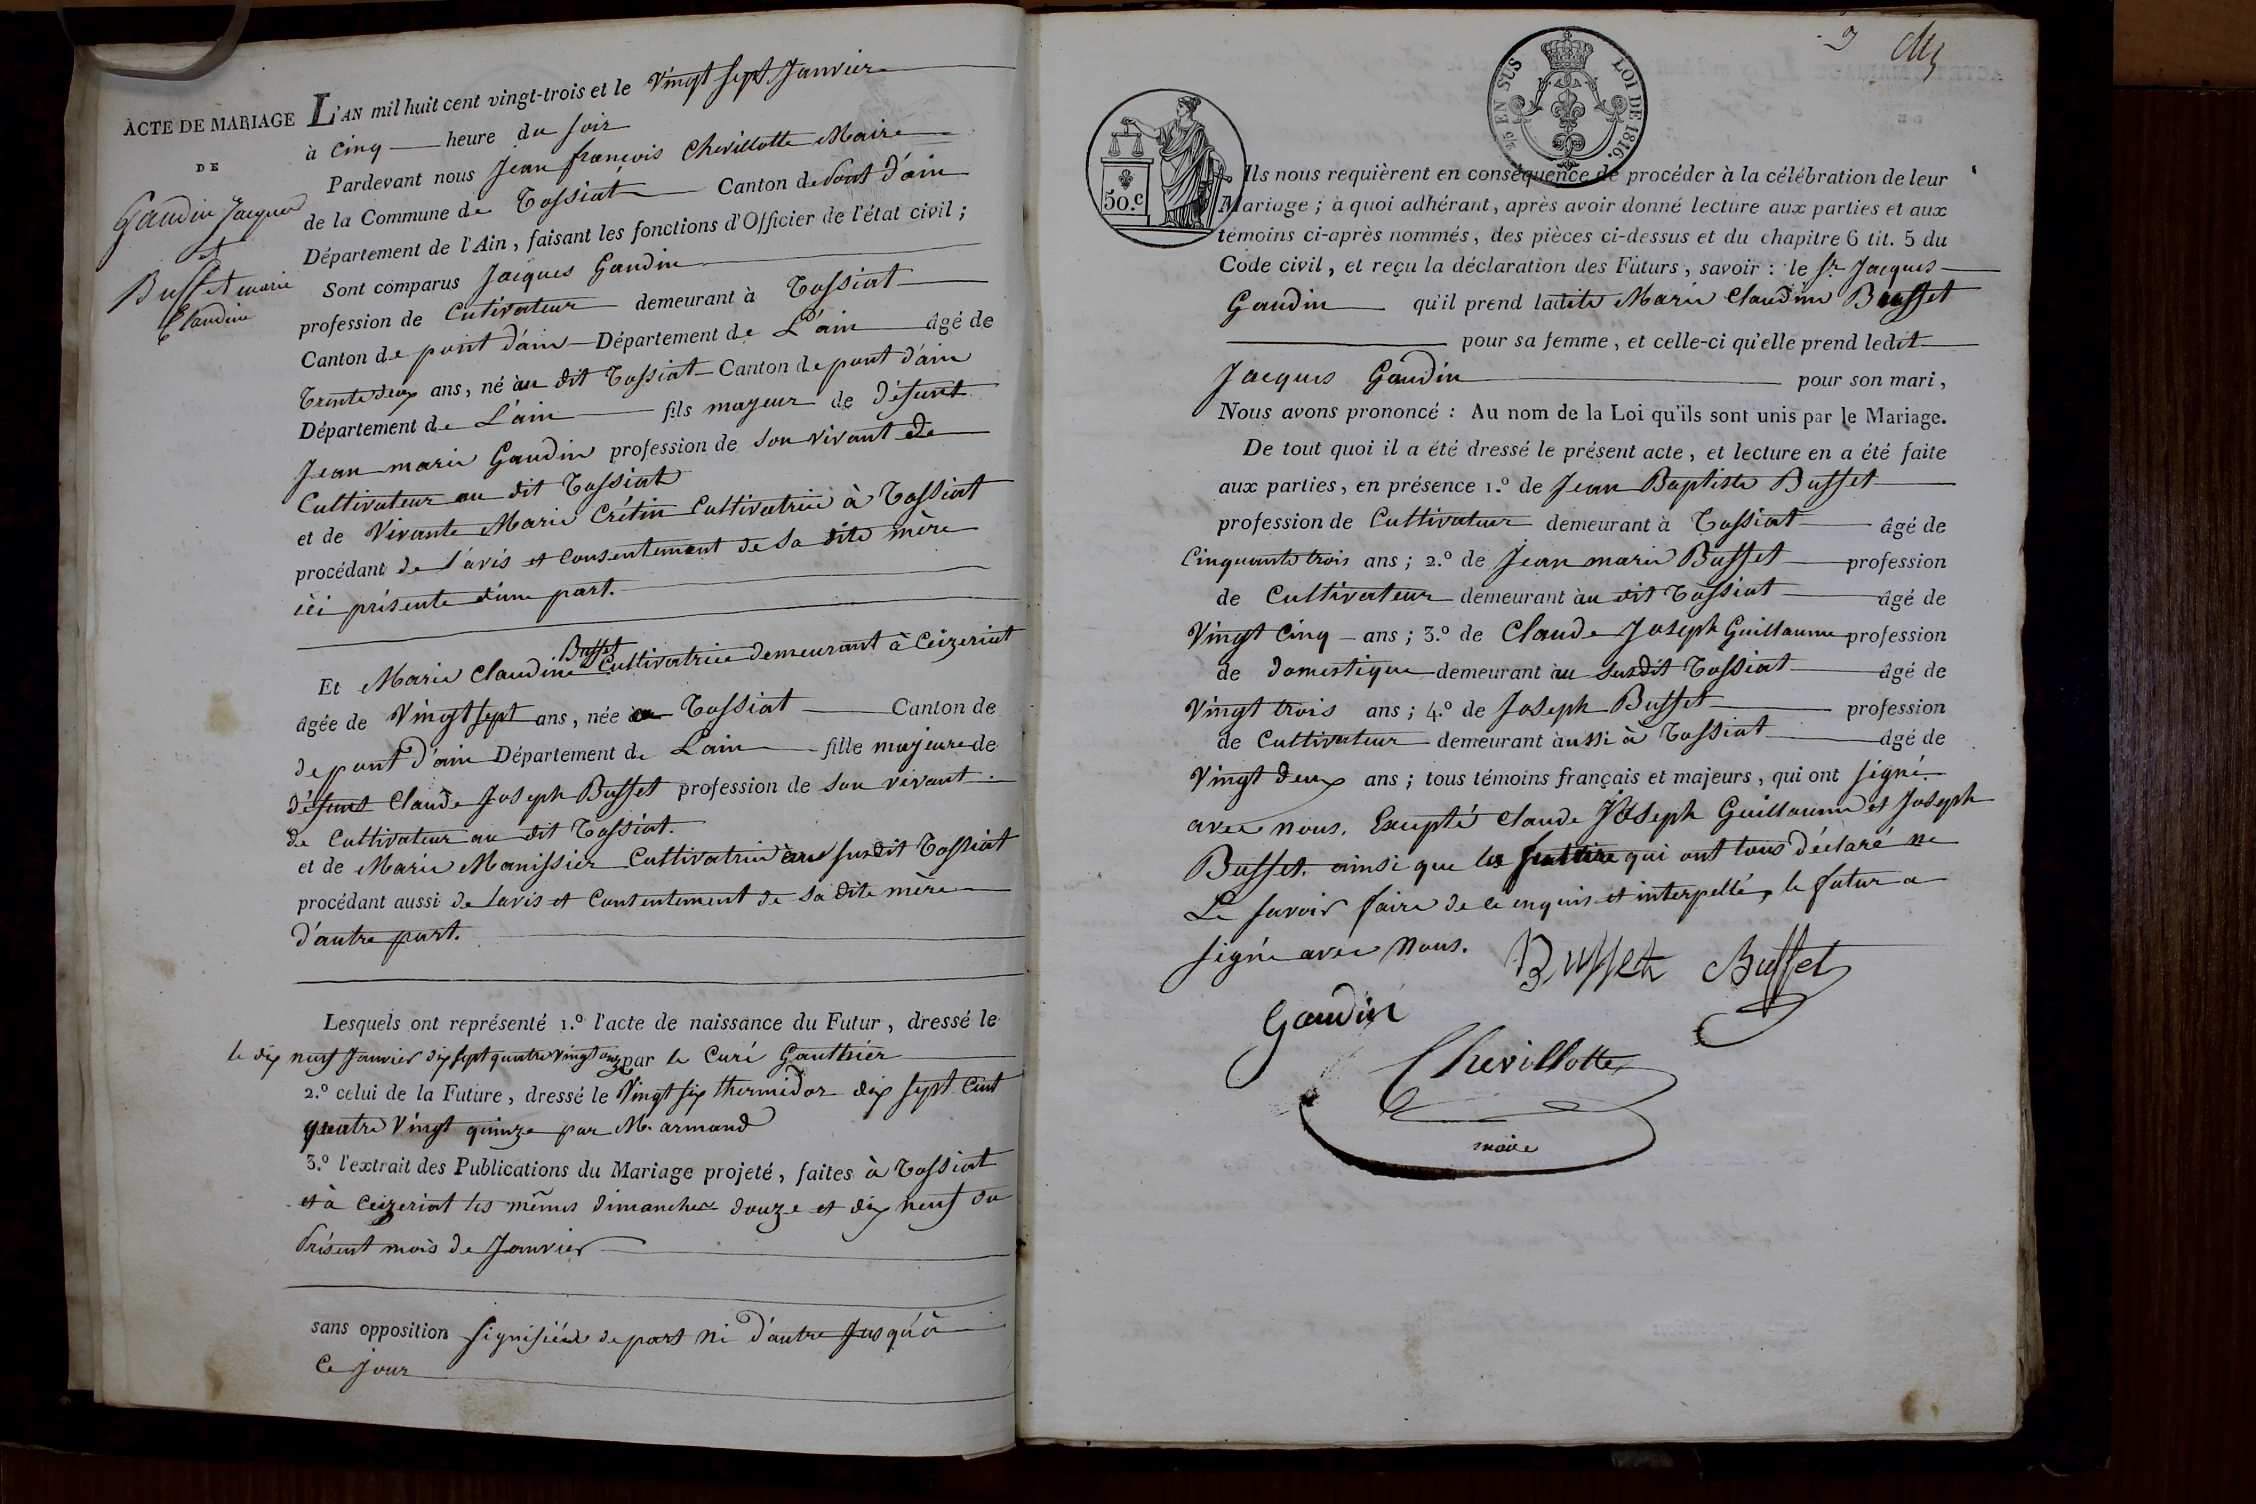 ACTE DE MARIAGE
DE
Gaudin Jacques
et
Buffet marie
Claudine
L'AN mil huit cent vingt-trois et le Vingt sept Janvier
à Cinq heure du soir
Pardevant nous Jean françois Chevillotte Maire
de la Commune de Tossiat Canton de Pont d'ain
Département de l'Ain, faisant les fonctions d'Officier de l'état civil ;
Sont comparus Jacques Gaudin
profession de Cutivateur demeurant à Tossiat
Canton de pont d'ain Département de L'ain âgé de
trente deux ans, né au dit Tossiat Canton de pont d'ain
Département de L'ain fils majeur de Défunt
Jean marie Gaudin profession de son vivant de
Cultivateur au dit Tossiat
et de Vivante Marie Crétin Cultivatrice à Tossiat
procédant de l'avis et consentement de sa dite mère
ici présente d'une part.
Buffet
Et Marie Claudine Cultivatrice demeurant à Ceizeriat
âgée de Vingt sept ans, née à Tossiat Canton de
de pont d'ain Département de L'ain fille majeure de
défunt Claude Joseph Buffet profession de son vivant
de Cultivateur au dit Tossiat.
et de Marie Manissier Cultivatrice au susdit Tossiat
procédant aussi de l'avis et Consentement de sa dite mère
d'autre part.
Lesquels ont représenté 1.º l'acte de naissance du Futur, dressé le
le dix neuf Janvier dix sept quatre vingt onze par le Curé Gauthier
2.º celui de la Future, dressé le Vingt six thermidor dix sept Cent
quatre Vingt quinze par M. armand
3.º l'extrait des Publications du Mariage projeté, faites à Tossiat
et à Ceizeriat les mêmes dimanches douze et dix neuf du
Présent mois de Janvier
sans opposition signifiée de part ni d'autre Jusqu'à
Ce Jour
50.c
EN SUS
LOI DE 1816.
Ils nous requièrent en conséquence de procéder à la célébration de leur
Mariage ; à quoi adhérant, après avoir donné lecture aux parties et aux
témoins ci-après nommés, des pièces ci-dessus et du chapitre 6 tit. 5 du
Code civil, et reçu la déclaration des Futurs, savoir : le Sr. Jacques
Gaudin qu'il prend ladite Marie Claudine Buffet
pour sa femme, et celle-ci qu'elle prend ledit
Jacques Gaudin pour son mari,
Nous avons prononcé : Au nom de la Loi qu'ils sont unis par le Mariage.
De tout quoi il a été dressé le présent acte, et lecture en a été faite
aux parties, en présence 1.º de Jean Baptiste Buffet
profession de Cultivateur demeurant à Tossiat âgé de
Cinquante trois ans ; 2.º de Jean marie Buffet profession
de Cultivateur demeurant au dit Tossiat âgé de
Vingt Cinq ans ; 3.º de Claude Joseph Guillaume profession
de domestique demeurant au susdit Tossiat âgé de
Vingt trois ans ; 4.º de Joseph Buffet profession
de Cultivateur demeurant aussi à Tossiat âgé de
Vingt Deux ans ; tous témoins français et majeurs, qui ont signé
avec nous. Excepté Claude Joseph Guillaume et Joseph
Buffet. ainsi que la future qui ont tous déclaré ne
Le savoir faire de ce enquis et interpellé, le futur a
signé avec nous. Buffet Buffet
Gaudin
Chevillotte
maire